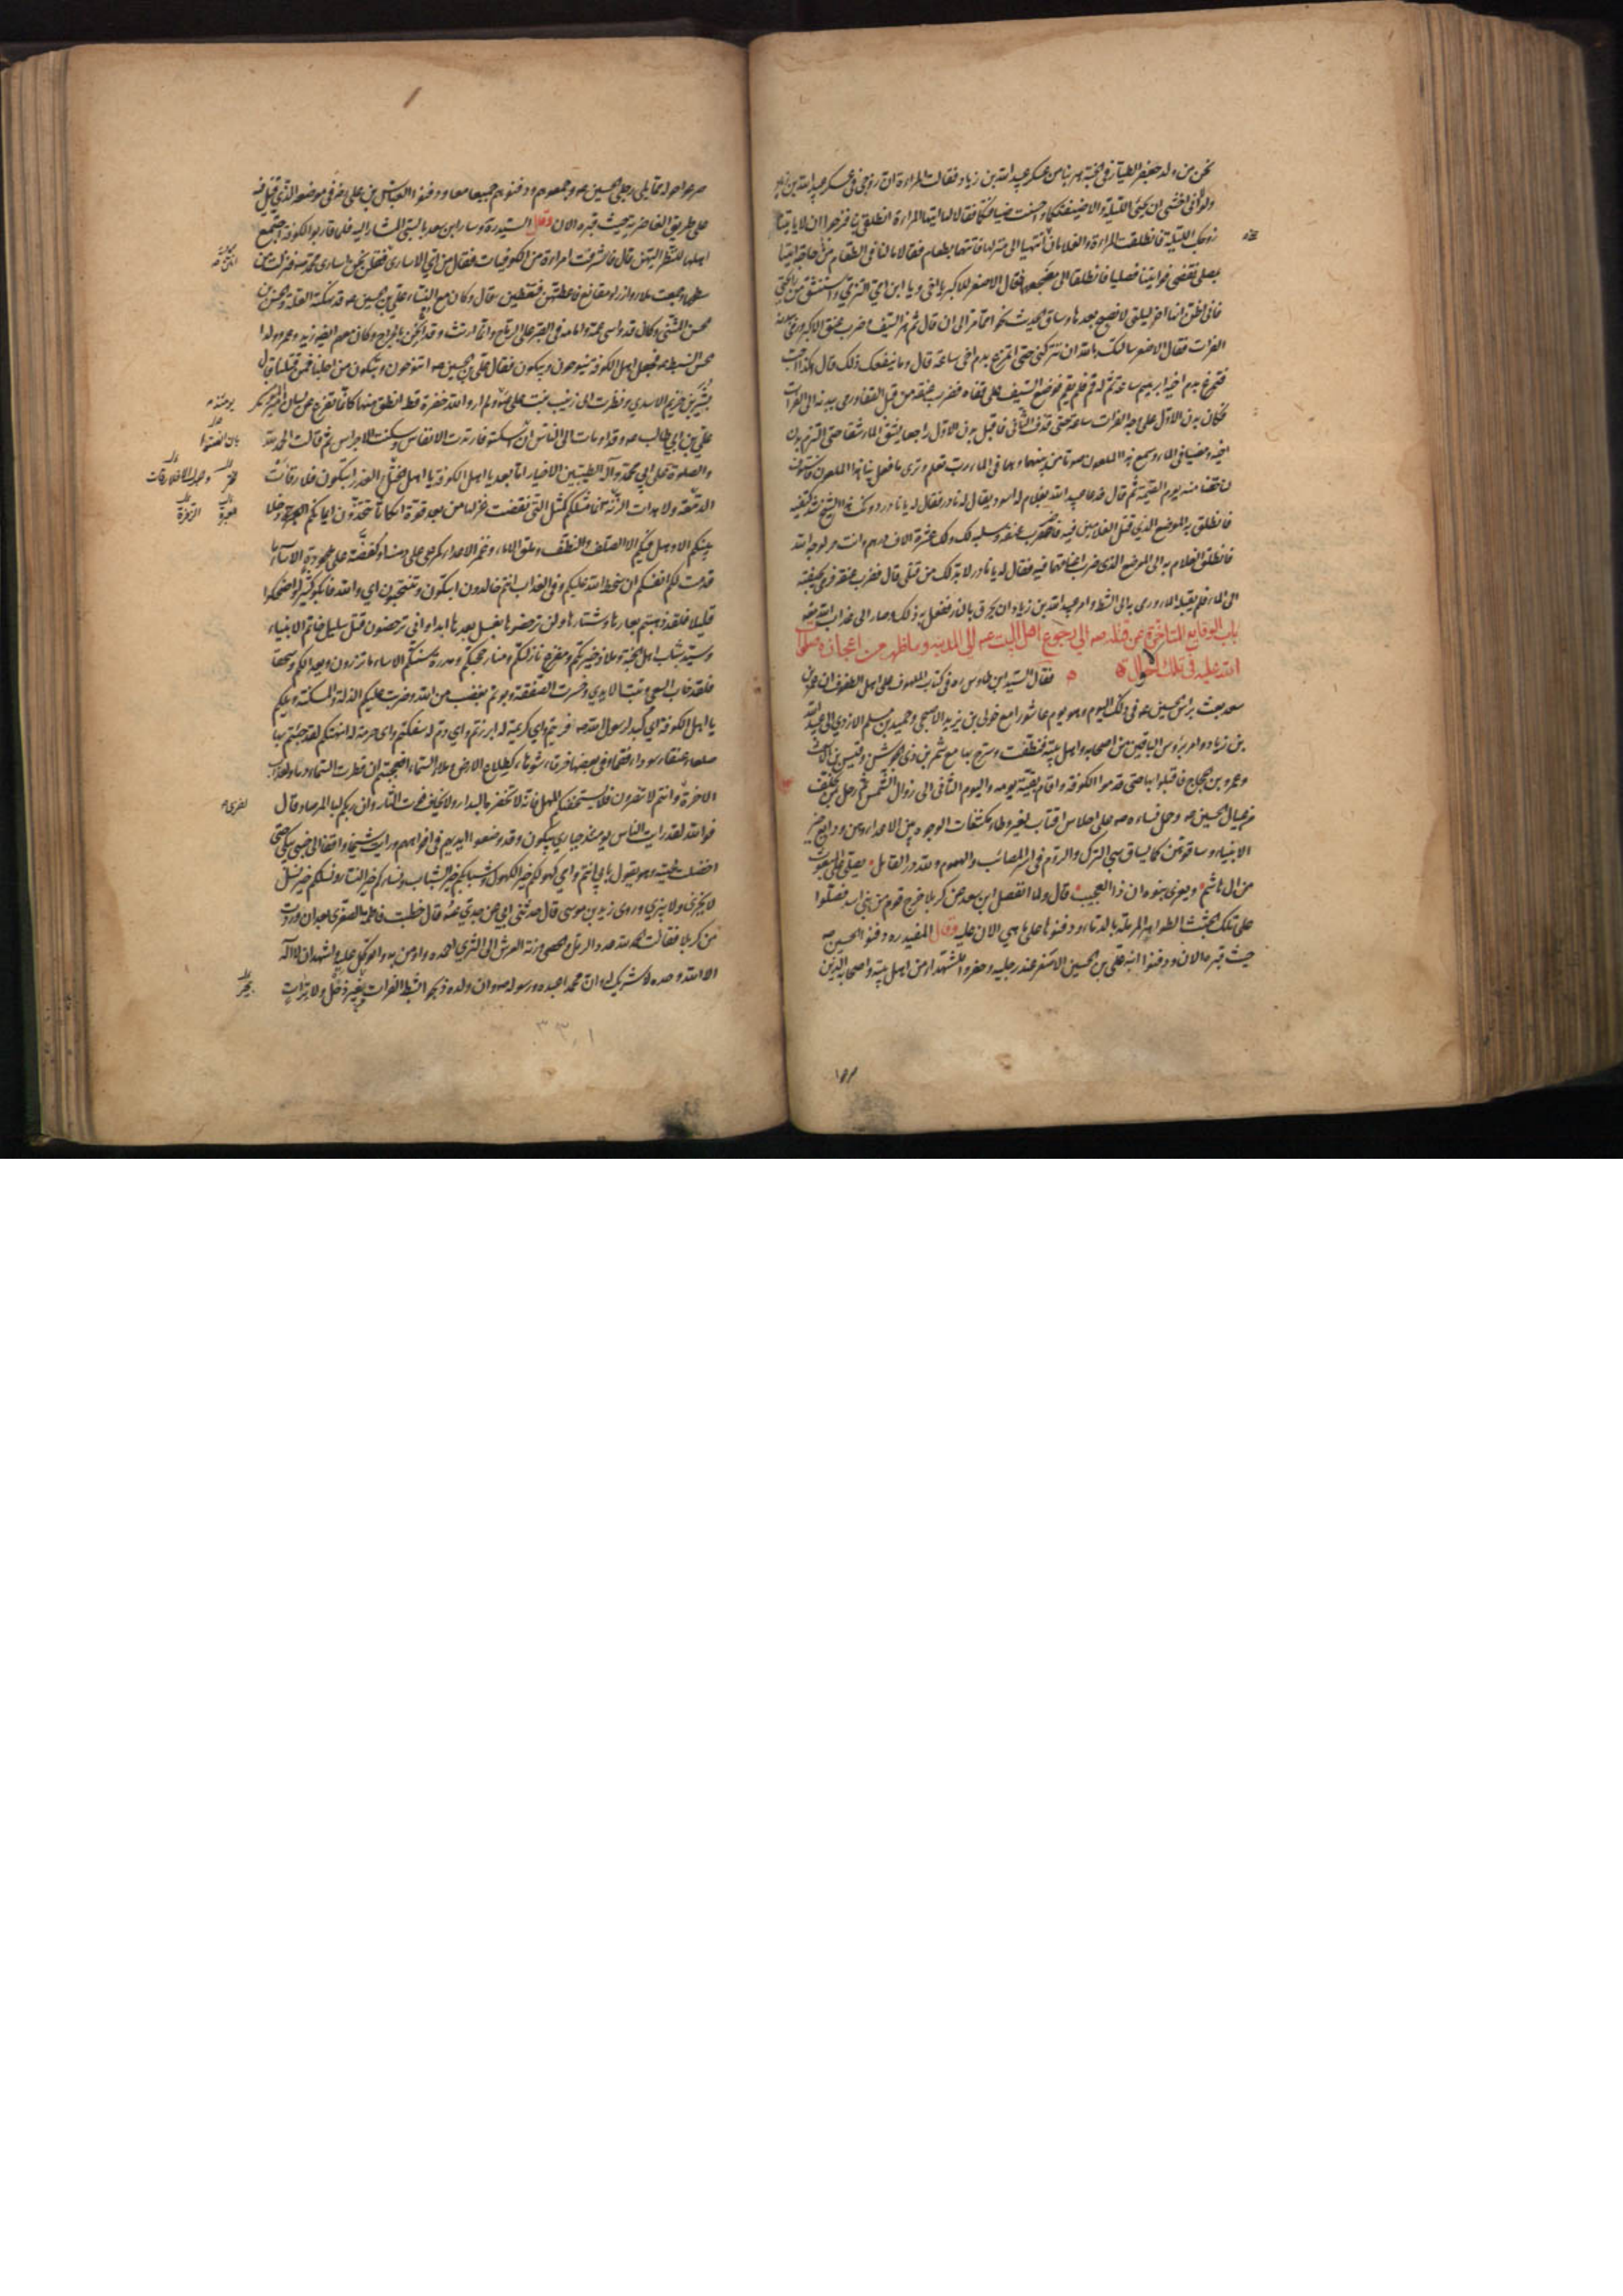 نحن من ولد جعفر الطيار في الجنة هربنا من عسكر عبيد الله بن زياد فقالت المراءة ان زوجي في عسكر عبيد الله بن زياد
ولولا اني اخشى ان يجئ الليلة والا ضيفتكما واحسنت ضيافتكما فقالا لها ايتها المراءة انطلقي بنا فنرجوا ان لا ياتينا
زوجك الليلة فانطلقت المراءة والغلامان حتى انتهيا الى منزلها فاتتهما بطعام فقالا ما لنا في الطعام من حاجة ايتينا
بمصلى نقضي فوايتنا فصليا فانطلقا الى مضجعهما فقال الاصغر للاكبر يا اخي ويا ابن امي التزمني واستنشق من رايحتي
فاني اظن انها اخر ليلتي لا نصبح بعدها وساق الحديث نحوا مما مر الى ان قال ثم هز السيف وضرب عنق الاكبر ورمى ببدنه
الفرات فقال الاصغر سالتك بالله ان تتركني حتى اتمرغ بدم اخي ساعة قال وما ينفعك ذلك قال هكذا احب
فتمرغ بدم اخيه ابراهيم ساعة ثم قال له قم فلم يقم فوضع السيف على قفاه فضرب عنقه من قبل القفا ورمى ببدنه الى الفرات
فكان بدن الاول على وجه الفرات ساعة حتى قذف الثاني فاقبل بدن الاول راجعا يشق الماء شقا حتى التزم بدن
اخيه ومضيا في الماء وسمع هذا الملعون صوتا من بينهما وهما في الماء رب تعلم وترى ما فعل بنا هذا الملعون فاستوف
لنا حقنا منه يوم القيمة ثم قال فدعا عبيد الله بغلام له اسود يقال له نادر فقال له يا نادر دونك هذا الشيخ شد كتفيه
فانطلق به الموضع الذي قتل الغلامين فيه فاضرب عنقه وسلبه لك ولك عشرة الاف درهم وانت حر لوجه الله
فانطلق الغلام به الى الموضع الذي ضرب اعناقهما فيه فقال له يا نادر لا بد لك من قتلي قال فضرب عنقه فرمى بجيفته
الى الماء فلم يقبله الماء ورمى به الى الشط وامر عبيد الله بن زياد ان يحرق بالنار ففعل به ذلك وصار الى عذاب الله
باب الوقايع المتاخرة عن قتله صه الى رجوع اهل البيت عم الى المدينة وما ظهر من اعجازه صلوات
الله عليه في تلك الاحوال فقال السيد ابن طاوس ره في كتاب الملهوف على اهل الطفوف ان عمر بن
سعد بعث براس الحسين عم في ذلك اليوم وهو يوم عاشورا مع خولي بن يزيد الاصبحي وحميد بن مسلم الازدي الى عبيد الله
بن زياد وامر برؤس الباقين من اصحابه واهل بيته فنظفت وسرح بها مع شمر بن ذي الجوشن وقيس بن الاشعث
وعمرو بن الحجاج فاقبلوا بها حتى قدموا الكوفة واقام بقية يومه واليوم الثاني الى زوال الشمس ثم رحل بمن تخلف
من عيال الحسين صه وحمل نساءه صه على احلاس اقتاب بغير وطاء مكشفات الوجوه بين الاعداء وهن ودايع خير
الانبياء وساقوهن كما يساق سبي الترك والروم في اسر المصائب والهموم ولله در القائل يصلى على المبعوث
من ال هاشم ويغزى بنوه ان ذا لعجيب قال ولما انفصل ابن سعد عن كربلا خرج قوم من بني اسد فصلوا
على تلك الجثث الطواهر المرملة بالدماء ودفنوها على ما هي الان عليه وقال المفيد ره ودفنوا الحسين صه
حيث قبره الان ودفنوا ابنه علي بن الحسين الاصغر عند رجليه وحفروا للشهداء من اهل بيته واصحابه الذين
صرعوا حوله مما يلي رجلي الحسين عم وجمعوهم ودفنوهم جميعا معا ودفنوا العباس بن علي عم في موضعه الذي قتل فيه
على طريق الغاضرية حيث قبره الان وقال السيد ره وسار ابن سعد بالسبي المشار اليه فلما قاربوا الكوفة اجتمع
اهلها للنظر اليهن قال فاشرفت امراءة من الكوفيات فقالت من اي الاسارى فقلن نحن اسارى محمد صه فنزلت من
سطحها وجمعت ملاء وازر ومقانع فاعطتهن فتغطين قال وكان مع النساء علي بن الحسين عم قد نهكته العلة والحسن بن
الحسن المثنى وكان قد واسى عمه وامامه في الصبر على الرماح وانما ارتث وقد اثخن بالجراح وكان معهم ايضا زيد وعمرو ولدا
الحسن السبط عم فجعل اهل الكوفة ينوحون ويبكون فقال علي بن الحسين عم اتنوحون وتبكون من اجلنا فمن قتلنا قال
بشير بن خزيم الاسدي ونظرت الى زينب بنت علي يومئذ ولم ار والله خفرة قط انطق منها كانما تفرع عن لسان امير المؤمنين
علي بن ابي طالب عم وقد اومات الى الناس ان اسكتوا فارتدت الانفاس وسكنت الاجراس ثم قالت الحمد لله
والصلوة على ابي محمد وآله الطيبين الاخيار اما بعد يا اهل الكوفة يا اهل الختل والغدر اتبكون فلا رقات
الدمعة ولا هدات الرنة انما مثلكم كمثل التي نقضت غزلها من بعد قوة انكاثا تتخذون ايمانكم دخلا
بينكم الا وهل فيكم الا الصلف والنطف وملق الاماء وغمز الاعداء او كمرعى على دمنة او كفضة على ملحودة الا ساء ما
قدمت لكم انفسكم ان سخط الله عليكم وفي العذاب انتم خالدون اتبكون وتنتحبون اي والله فابكوا كثيرا واضحكوا
قليلا فلقد ذهبتم بعارها وشنارها ولن ترحضوها بغسل بعدها ابدا واني ترحضون قتل سليل خاتم الانبياء
وسيد شباب اهل الجنة وملاذ خيرتكم ومفزع نازلتكم ومنار حجتكم ومدرة سنتكم الا ساء ما تزرون وبعدا لكم وسحقا
فلقد خاب السعي وتبت الايدي وخسرت الصفقة وبؤتم بغضب من الله وضربت عليكم الذلة والمسكنة ويلكم
يا اهل الكوفة اي كبد لرسول الله صه فريتم واي كريمة له ابرزتم واي دم له سفكتم واي حرمة له انتهكتم لقد جئتم بها
صلعاء عنقاء سوداء فقماء وفي بعضها خرقاء شوهاء كطلاع الارض وملاء السماء افعجبتم ان قطرت السماء دما ولعذاب
الاخرة وانتم لا تنصرون فلا يستخفنكم المهل فانه لا تحفزه البدار ولا يخاف فوت الثار وان ربكم لبالمرصاد قال
فوالله لقد رايت الناس يومئذ حيارى يبكون وقد وضعوا ايديهم في افواههم ورايت شيخا واقفا الى جنبي يبكي حتى
اخضلت لحيته وهو يقول بابي انتم وامي كهولكم خير الكهول وشبابكم خير الشباب ونساءكم خير النساء ونسلكم خير نسل
لا يخزى ولا يبزى وروى زيد بن موسى قال حدثني ابي عن جدي عم قال خطبت فاطمة الصغرى بعد ان وردت
من كربلا فقالت الحمد لله عدد الرمل والحصى وزنة العرش الى الثرى احمده واومن به واتوكل عليه واشهد ان لا اله
الا الله وحده لا شريك له وان محمدا عبده ورسوله صه وان ولده ذبحوا بشط الفرات بغير ذحل ولا تراث
٣٣١